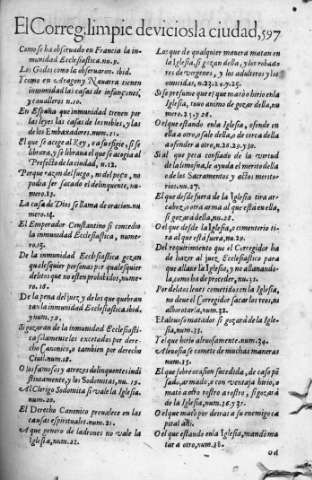 El Correg. limpie de vicios la ciudad, 597
Como se ha obseruado en Francia la in-
munidad Ecclesiastica. nu. 9.
Los Godos como la obseruaron. ibid.
I como en Aragon y Nauarra tienen
inmunidad las casas de infançones,
y caualleros n. 10.
En España que inmunidad tienen por
las leyes las casas de los nobles, y las
de los Embaxadores. num. 11.
El que se acoge al Rey, o a su efigie, si se
librara, y se libraua el que se acogia al
Prefecto de la ciudad, n. 12.
Porque razon del juego, ni del poço, no
podia ser sacado el delinquente, nu-
mero. 13.
La casa de Dios se llama de oracion. nu
mero. 14.
El Emperador Constantino si concedio
la inmunidad Ecclesiastica, nume-
ro. 15.
De la inmunidad Ecclesiastica gozan
qualesquier personas por qualesquier
delitos que no esten prohibidos, nume-
ro. 16.
De la pena del juez, y de los que quebran
tan la inmunidad Ecclesiastica. ibid.
y num. 17.
Si gozaran de la inmunidad Ecclesiasti-
ca solamente los exceptados por dere-
cho Canonico, o tambien por derecho
Ciuil. num. 18.
O los famosos y atroces delinquentes indi
stinctamente, y los Sodomitas, nu. 19.
Al Clerigo Sodomita si vale la Iglesia.
num. 20.
El Derecho Canonico preualece en las
causas espirituales. num. 21.
A que genero de ladrones no vale la
Iglesia, num. 22.
Los que de qualquier manera matan en
la Iglesia, si gozan della, y los robado-
res de virgenes, y los adulteros y los
omicidas, n. 23. 24. y 25.
Si se presume que el que mató o hirio en la
Iglesia, tuuo animo de gozar della, nu
mero. 25. y 26.
O el que estando en la Iglesia, ofende en
ella a otro, o sale della, o de cerca della
a ofender a otro, n. 28. 29. y 30.
Si al que peca confiado de la virtud
de la limosna, le ayuda el merito della
o de los Sacramentos y actos merito-
rios. nu. 27.
El que desde fuera de la Iglesia tira ar-
cabuz, o otra arma al que está en ella,
si gozará della, nu. 28.
O el que desde la Iglesia, o cementerio ti-
ra al que está fuera, nu. 29.
Del requirimiento que el Corregidor ha
de hazer al juez Ecclesiastico para
que allane la Iglesia, y no allanando-
la, como ha de proceder, nu. 31.
Por delitos leues cometidos en la Iglesia,
no deue el Corregidor sacar los reos, ni
alborotarla, num. 32.
El aleuoso matador si gozará de la Igle-
sia, num. 33.
Y el que hirio aleuosamente. num. 34.
Aleuosia se comete de muchas maneras
num. 35.
El que sobre ocasion sucedida, de caso pē
sado, armado, o con ventaja hirio, o
mató a otro rostro a rostro, si gozará
de la Iglesia, num. 36. y 37.
O el que mató por detras a su enemigo ca
pital
O el que estando en la Iglesia, manda ma
tar a otro, num. 38.